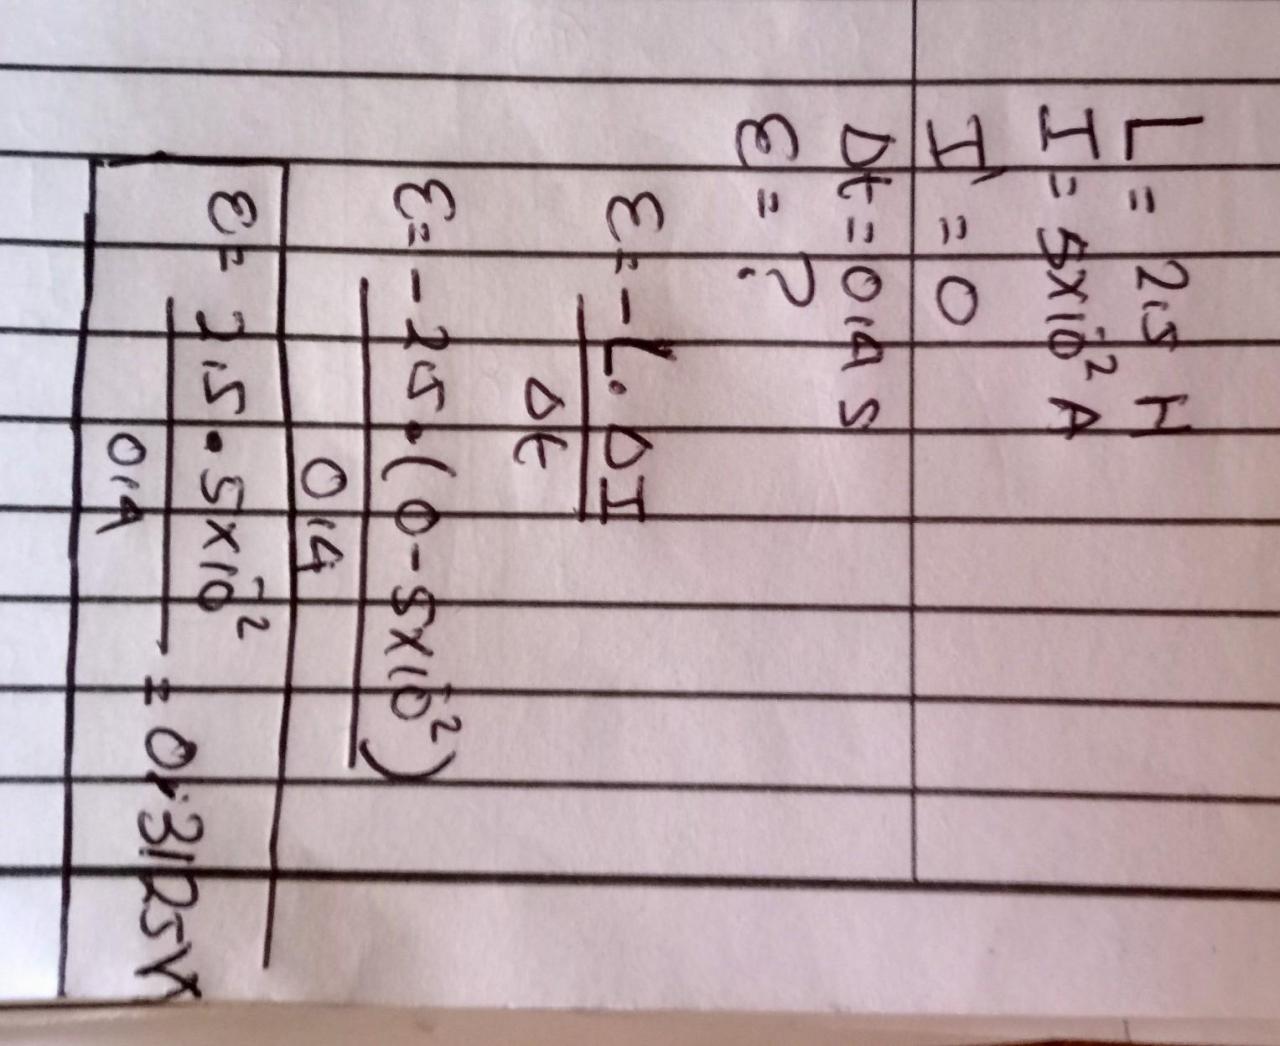 L = 2,5 H
I = 5x10⁻² A
I' = 0
Δt = 0,4 s
ε = ?
ε = -L . ΔI
Δt
ε = - 2,5 . (0 - 5x10⁻²)
0,4
ε = 2,5 . 5x10⁻² = 0,3125V
0,4